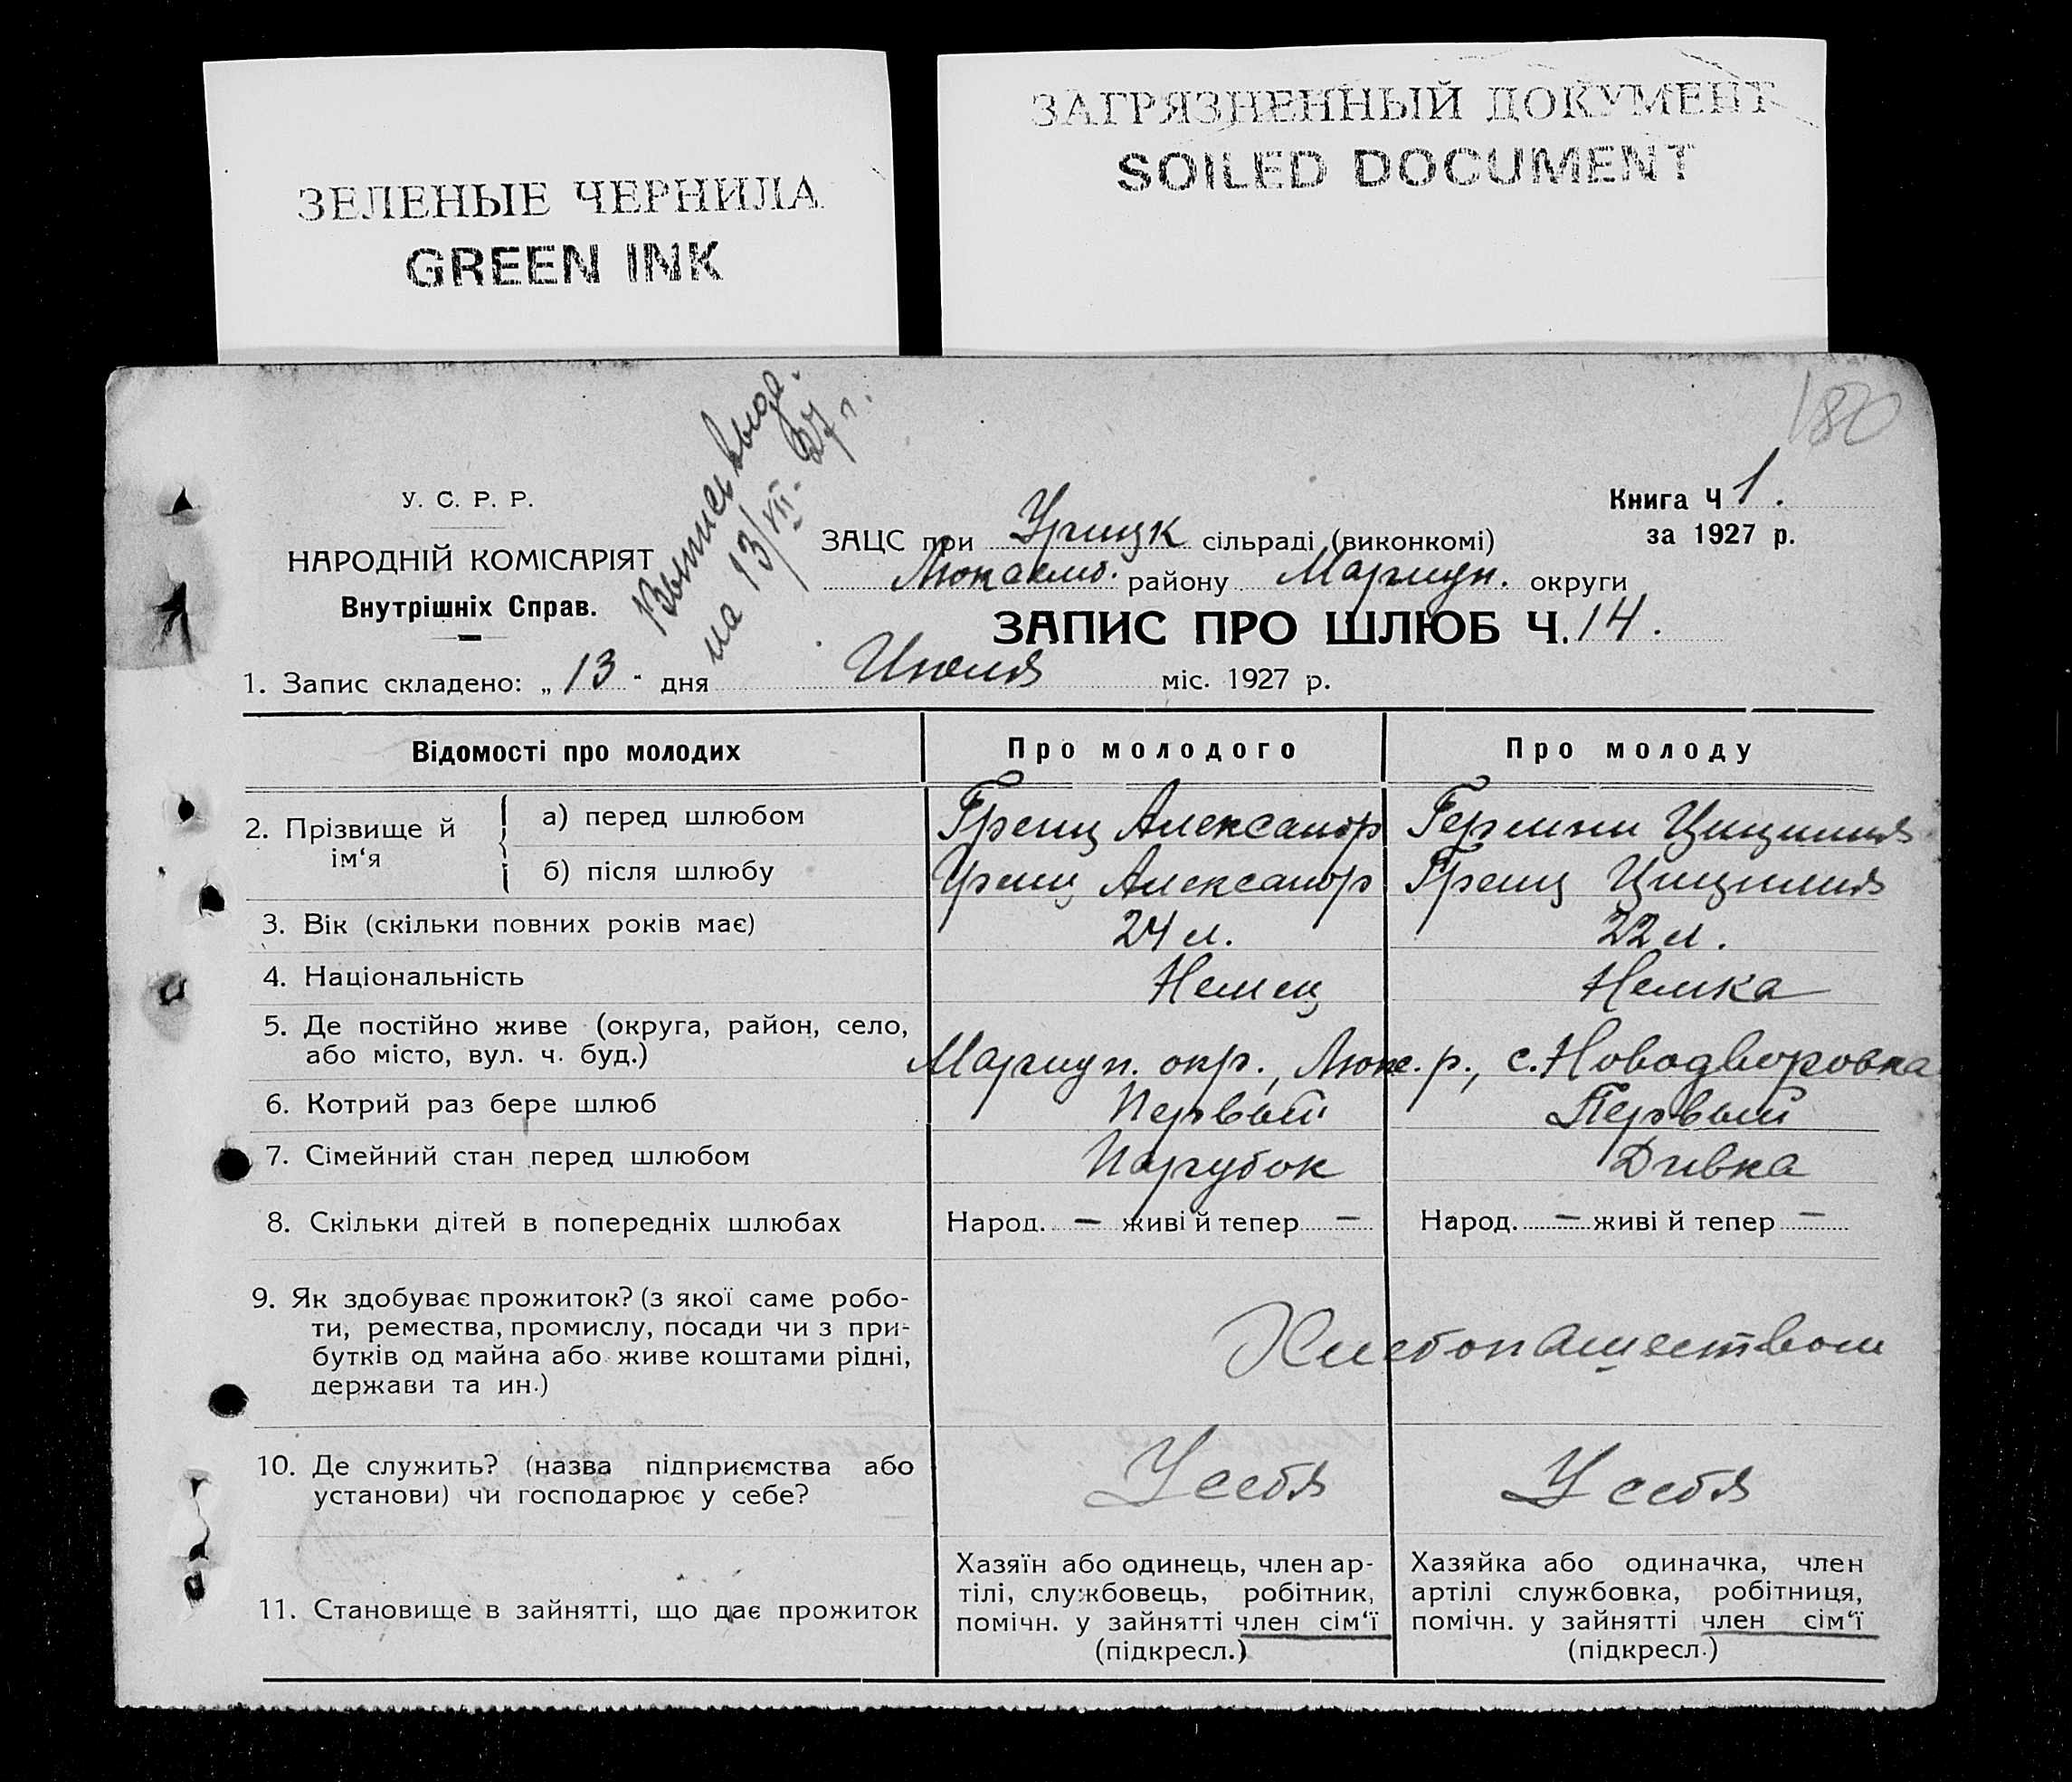 ЗЕЛЕНЫЕ ЧЕРНИЛА
GREEN INK
ЗАГРЯЗНЕННЫЙ ДОКУМЕНТ
SOILED DOCUMENT
180
Выпись выда.
на 13/VII - 27 г.
У. С. Р. Р.
НАРОДНІЙ КОМІСАРІЯТ
Внутрішніх Справ.
Книга Ч 1.
за 1927 р.
ЗАЦС при Урицк сільраді (виконкомі)
Люксемб. району Мариуп. округи
ЗАПИС ПРО ШЛЮБ Ч. 14.
1. Запис складено: „13" дня Июля міс. 1927 р.
Відомості про молодих Про молодого Про молоду
2. Прізвище й ім‘я
а) перед шлюбом Гренц Александр Герман Цицилия
б) після шлюбу Гренц Александр Гренц Цицилия
3. Вік (скільки повних років має) 24 л. 22 л.
4. Національність Немец Немка
5. Де постійно живе (округа, район, село,
або місто, вул. ч. буд.) Мариуп. окр., Люкс. р., с. Новодворовка
6. Котрий раз бере шлюб Первый Первый
7. Сімейний стан перед шлюбом Парубок Дивка
8. Скільки дітей в попередніх шлюбах Народ. — живі й тепер — Народ. — живі й тепер —
9. Як здобуває прожиток? (з якої саме робо-
ти, ремества, промислу, посади чи з при-
бутків од майна або живе коштами рідні,
держави та ин.)
Хлебопашеством
10. Де служить? (назва підприємства або
установи) чи господарює у себе?
У себя У себя
11. Становище в зайнятті, що дає прожиток
Хазяїн або одинець, член ар-
тілі, службовець, робітник,
помічн. у зайнятті член сім‘ї
(підкресл.)
Хазяйка або одиначка, член
артілі службовка, робітниця,
помічн. у зайнятті член сім‘ї
(підкресл.)